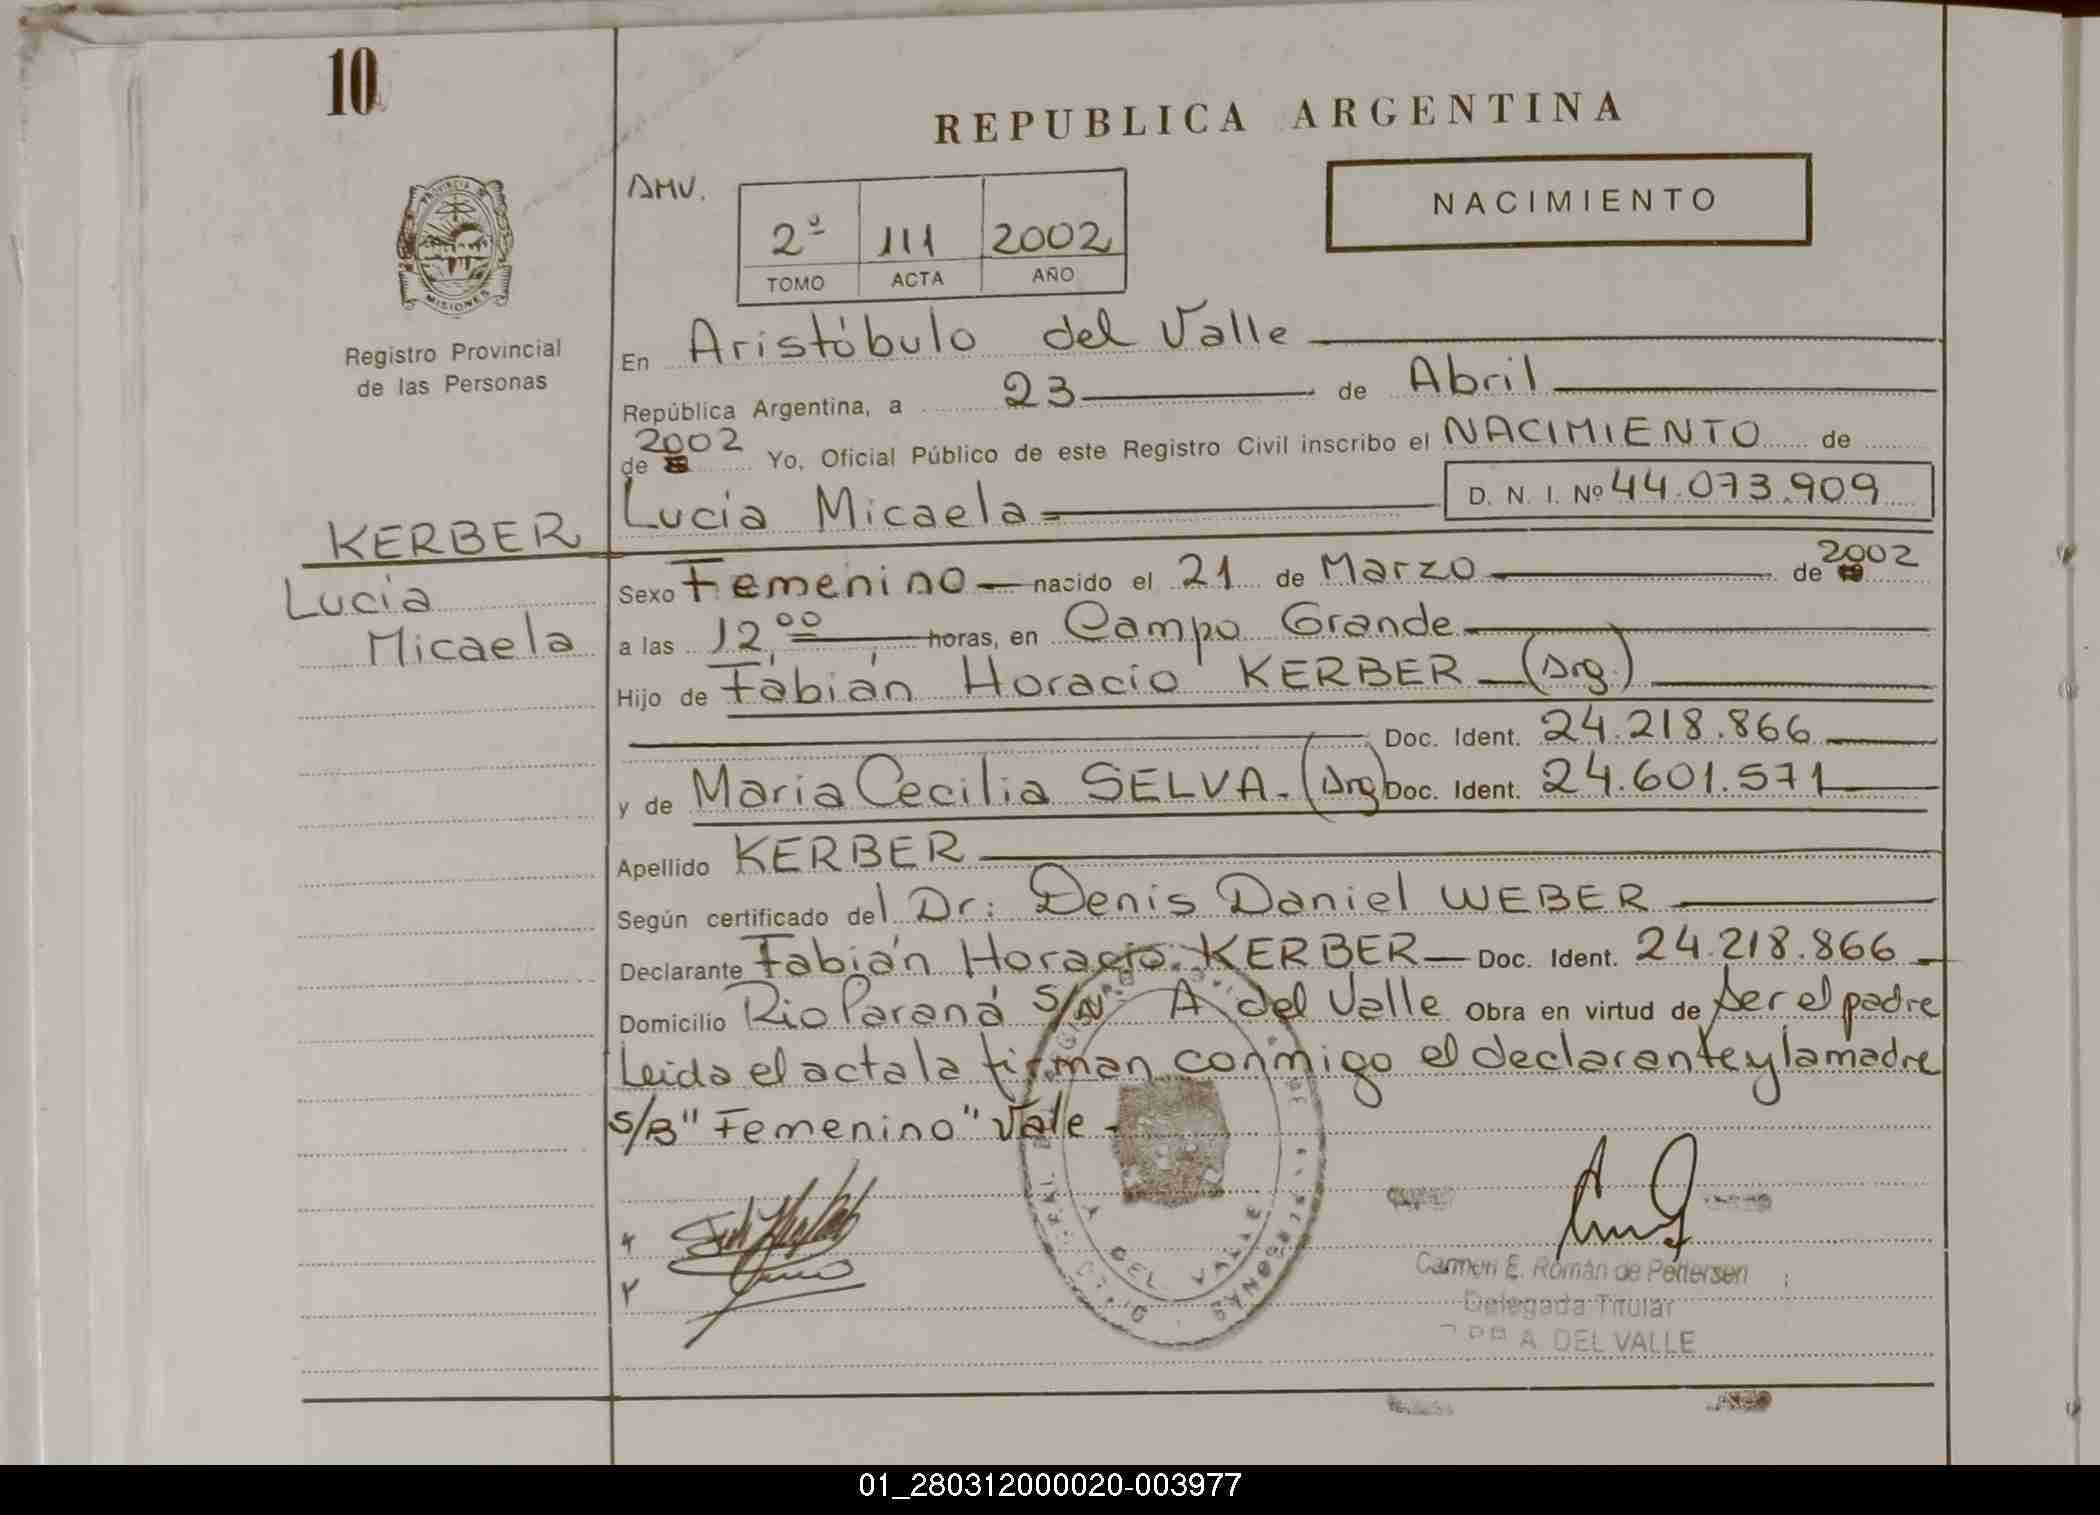 10
REPUBLICA ARGENTINA
AMV.
2º 111 2002
TOMO ACTA AÑO
NACIMIENTO
MISIONES
Registro Provincial
de las Personas
En Aristóbulo del Valle
República Argentina, a 23 de Abril
de 2002 Yo, Oficial Público de este Registro Civil inscribo el NACIMIENTO de
Lucia Micaela D. N. I. Nº 44.073.909
KERBER
Lucia
Micaela
Sexo Femenino nacido el 21 de Marzo de 2002
a las 12,00 horas, en Campo Grande
Hijo de Fabián Horacio KERBER (Arg.)
Doc. Ident. 24.218.866
y de Maria Cecilia SELVA. (Arg) Doc. Ident. 24.601.571
Apellido KERBER
Según certificado del Dr: Denis Daniel WEBER
Declarante Fabián Horacio KERBER Doc. Ident. 24.218.866
Domicilio Rio Paraná S/N. A del Valle Obra en virtud de ser el padre
Leida el acta la firman conmigo el declarante y la madre
S/B "Femenino" Vale.
A DEL VALLE
Carmen E. Román de Pettersen
Delegada Titular
A. DEL VALLE
01_280312000020-003977